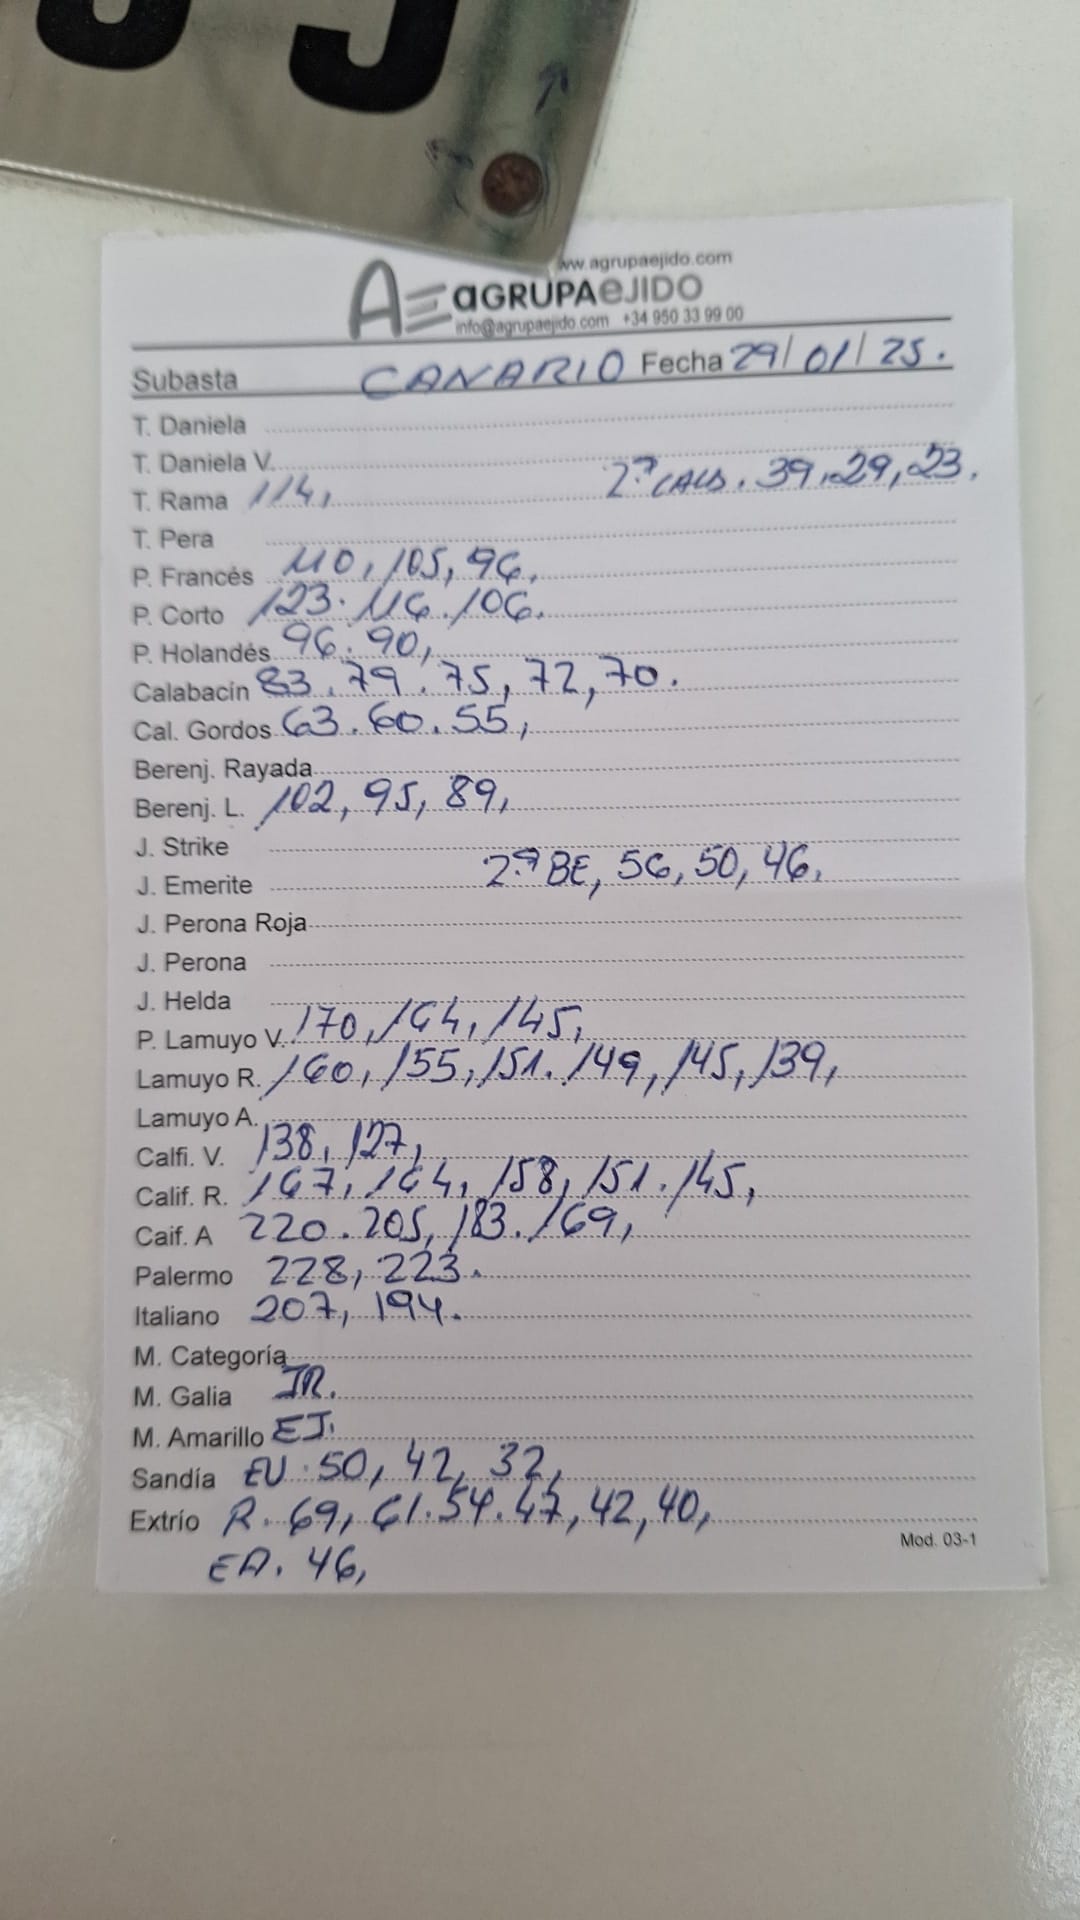 ww.agrupaejido.com
AE aGRUPAeJIDO
info@agrupaejido.com +34 950 33 99 00
Subasta CANARIO Fecha 29/01/25.
T. Daniela
T. Daniela V.
T. Rama 114, 2ª CALS. 39.29,23.
T. Pera
P. Francés 110,105,96.
P. Corto 123.116.106.
P. Holandés 96.90,
Calabacín 83.79.75,72,70.
Cal. Gordos 63.60.55,
Berenj. Rayada
Berenj. L. 102,95,89,
J. Strike
J. Emerite 2.ª BE, 56,50,46.
J. Perona Roja
J. Perona
J. Helda
P. Lamuyo V. 170,164,145,
Lamuyo R. 160,155,151.149,145,139,
Lamuyo A.
Calfi. V. 138,127,
Calif. R. 167,164,158,151.145,
Caif. A 220.205,183.169,
Palermo 228,223.
Italiano 207,194.
M. Categoría
M. Galia JR.
M. Amarillo EJ.
Sandía EU.50,42,32,
Extrío R.69,61.54.47,42,40,
EA.46,
Mod. 03-1